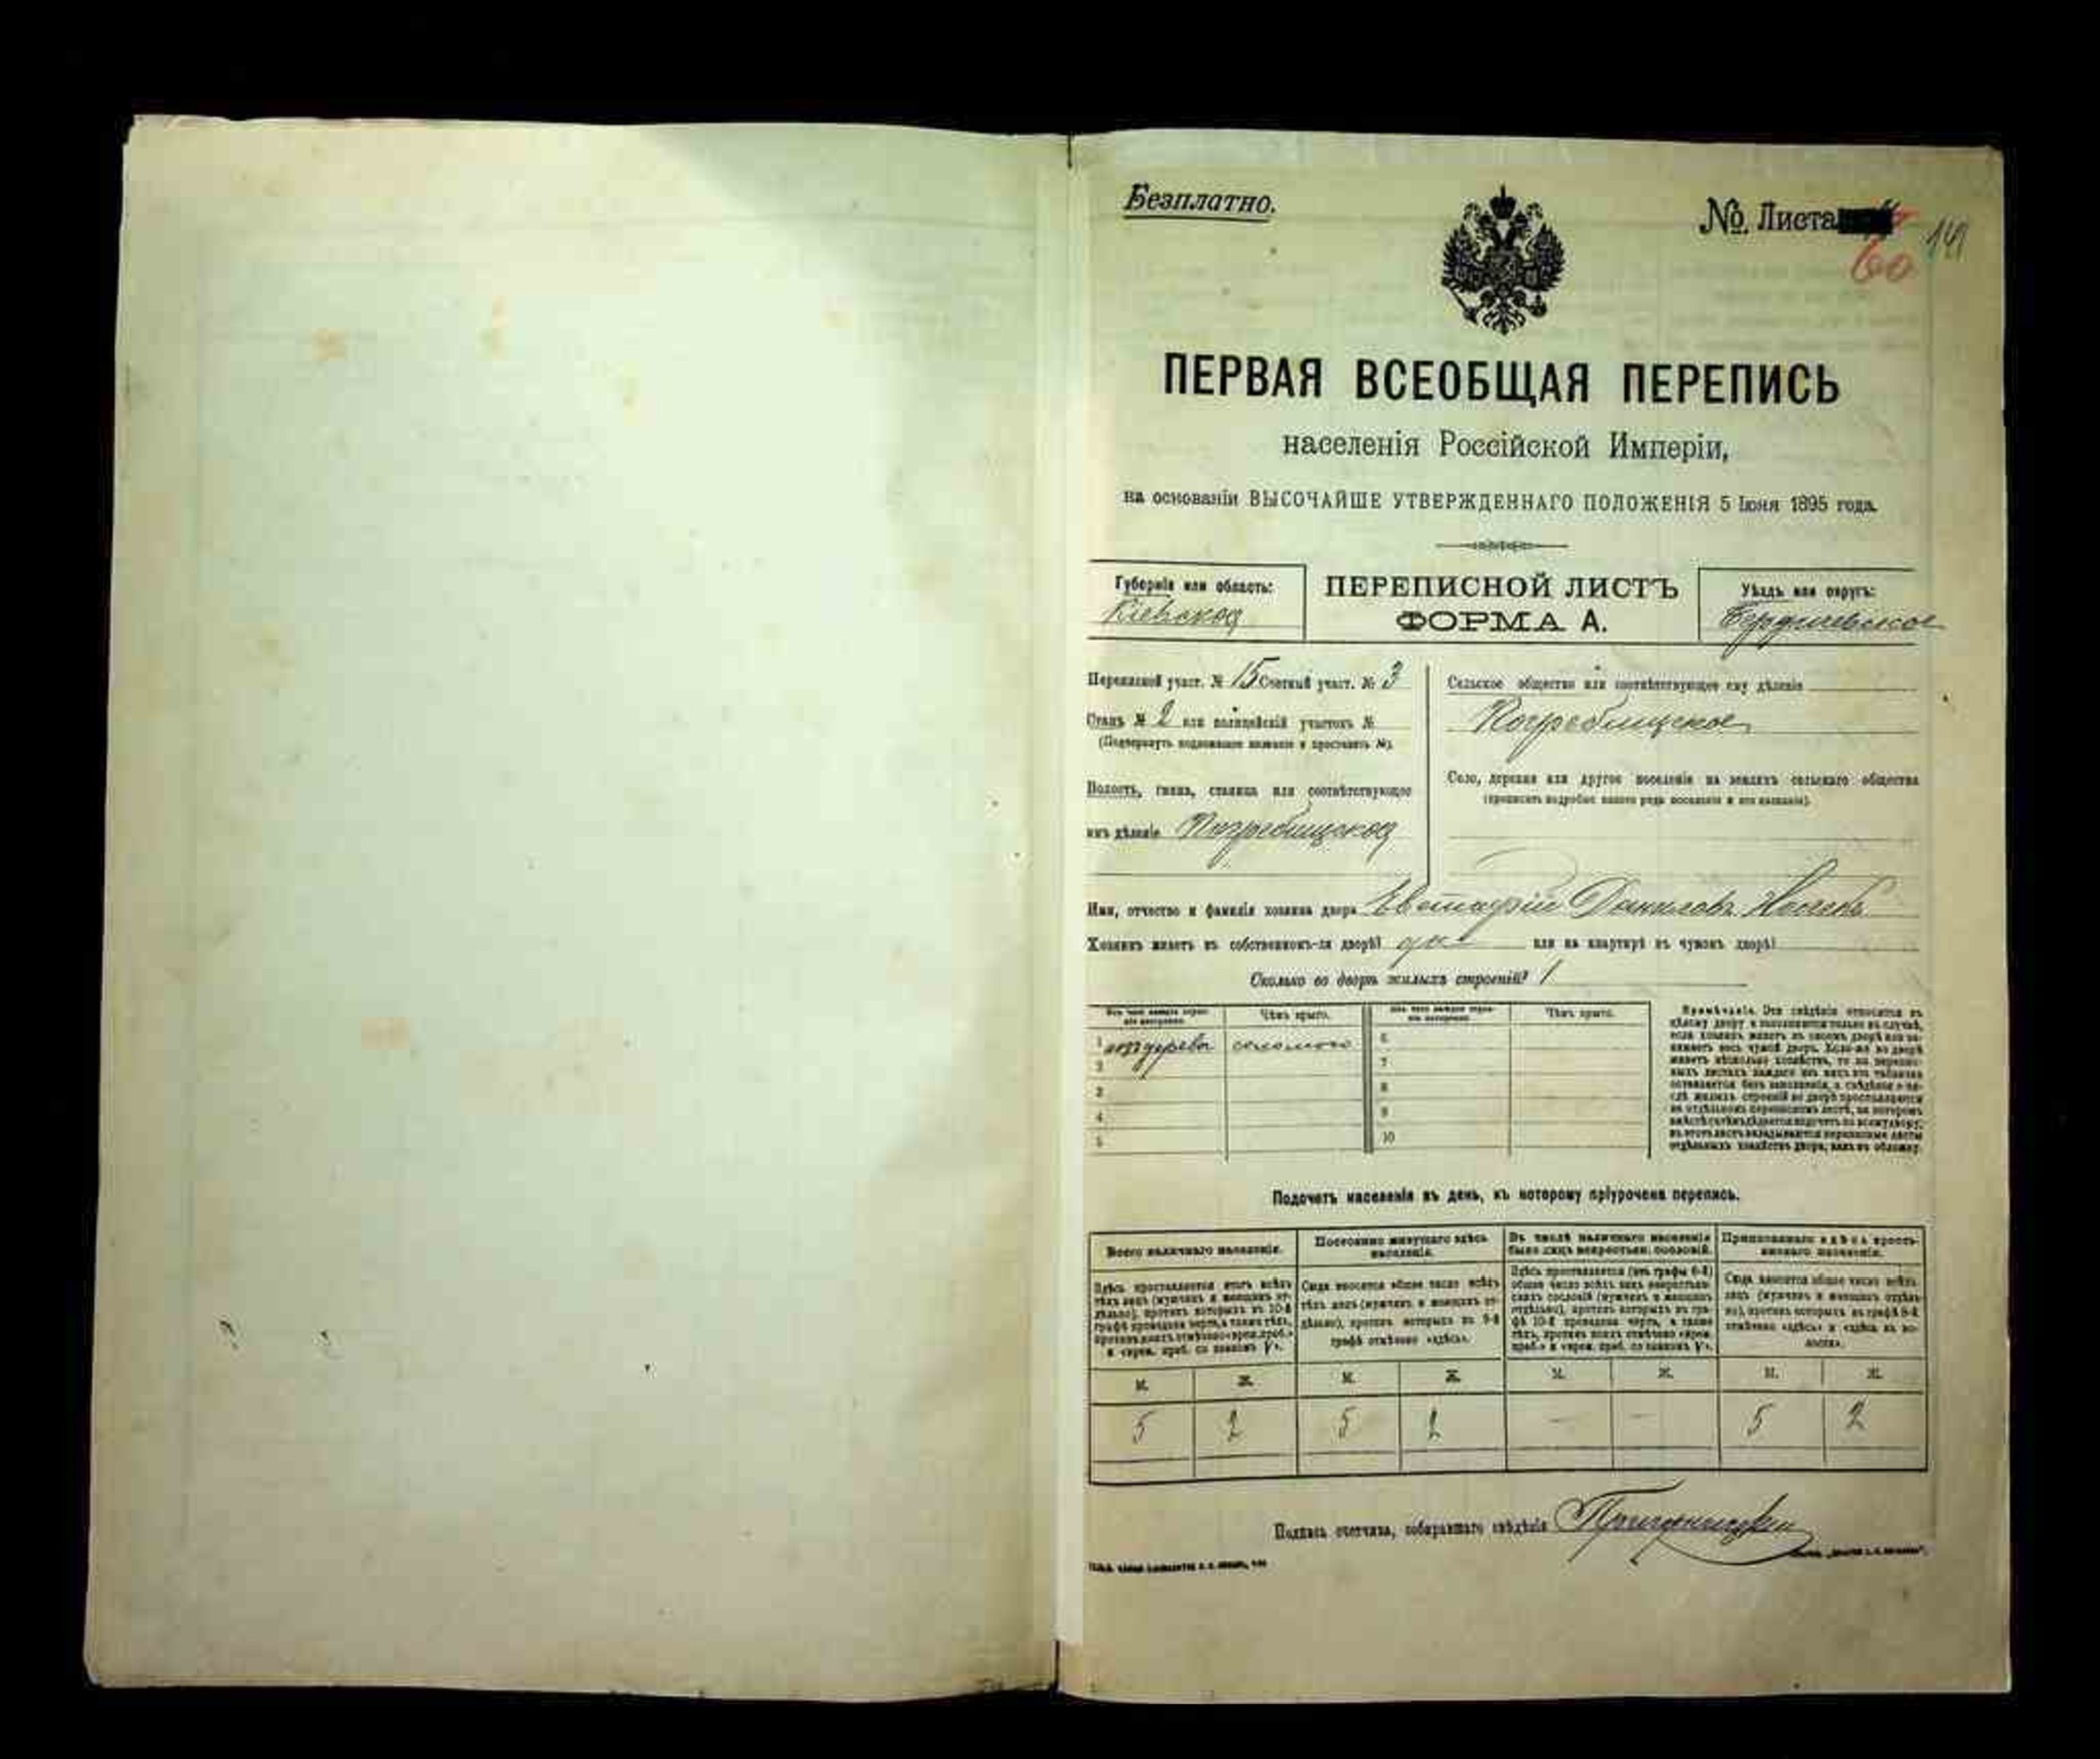 Безплатно.
№ Листа
60
141
ПЕРВАЯ ВСЕОБЩАЯ ПЕРЕПИСЬ
населенія Россійской Имперіи,
на основаніи ВЫСОЧАЙШЕ УТВЕРЖДЕННАГО ПОЛОЖЕНІЯ 5 Іюня 1895 года.
Губернія или область:
Кіевская
ПЕРЕПИСНОЙ ЛИСТЪ
ФОРМА А.
Уѣздъ или округъ:
Бердичевское
Переписной участ. № 15 Счетный участ. № 3
Станъ № 2 или полицейскій участокъ №
(Подчеркнуть подлежащее названіе и проставить №).
Волость, гмина, станица или соотвѣтствующее
имъ дѣленіе Погребищская
Сельское общество или соотвѣтствующее ему дѣленіе
Погребищское
Село, деревня или другое поселеніе на земляхъ сельскаго общества
(прописать подробно какого рода поселеніе и его названіе).
Имя, отчество и фамилія хозяина двора Евстафій Даниловъ
Хозяинъ живетъ въ собственномъ-ли дворѣ? да или на квартирѣ въ чужомъ дворѣ?
Сколько во дворѣ жилыхъ строеній? 1
Чѣмъ крыто.
Чѣмъ крыто.
1 изъ дерева соломою
2
3
4
5
6
7
8
9
10
Примѣчаніе. Эти свѣдѣнія относятся къ
цѣлому двору и заполняются только въ случаѣ,
если хозяинъ живетъ въ своемъ дворѣ или за-
нимаетъ весь чужой дворъ. Если-же во дворѣ
живетъ нѣсколько хозяйствъ, то на перепис-
ныхъ листахъ каждаго изъ нихъ эта табличка
оставляется безъ заполненія, а свѣдѣнія о чи-
слѣ жилыхъ строеній во дворѣ проставляются
на отдѣльномъ переписномъ листѣ, на которомъ
вмѣстѣ съ тѣмъ дѣлается подсчетъ по всему двору;
въ этотъ листъ вкладываются переписные листы
отдѣльныхъ хозяйствъ двора, какъ въ обложку.
Подсчетъ населенія въ день, къ которому пріурочена перепись.
Всего наличнаго населенія.
Здѣсь проставляется итогъ всѣхъ
тѣхъ лицъ (мужчинъ и женщинъ от-
дѣльно), противъ которыхъ въ 10-й
графѣ проведена черта, а также тѣхъ,
противъ коихъ отмѣчено «врем. проб.»
и «врем. преб. со знакомъ V».
Постоянно живущаго здѣсь
населенія.
Сюда вносится общее число всѣхъ
тѣхъ лицъ (мужчинъ и женщинъ от-
дѣльно), противъ которыхъ въ 9-й
графѣ отмѣчено «здѣсь».
Въ числѣ наличнаго населенія
было лицъ некрестьян. сословій.
Здѣсь проставляется (изъ графы 6-й)
общее число всѣхъ лицъ некрестьян-
скихъ сословій (мужчинъ и женщинъ
отдѣльно), противъ которыхъ въ гра-
фѣ 10-й проведена черта, а также
тѣхъ, противъ коихъ отмѣчено «врем.
преб.» и «врем. преб. со знакомъ V».
Приписаннаго здѣсь кресть-
янскаго населенія.
Сюда вносится общее число всѣхъ
лицъ (мужчинъ и женщинъ отдѣль-
но), противъ которыхъ въ графѣ 8-й
отмѣчено «здѣсь» и «здѣсь въ во-
лости».
М. Ж. М. Ж. М. Ж. М. Ж.
5 2 5 2 — — 5 2
Подпись счетчика, собиравшаго свѣдѣнія